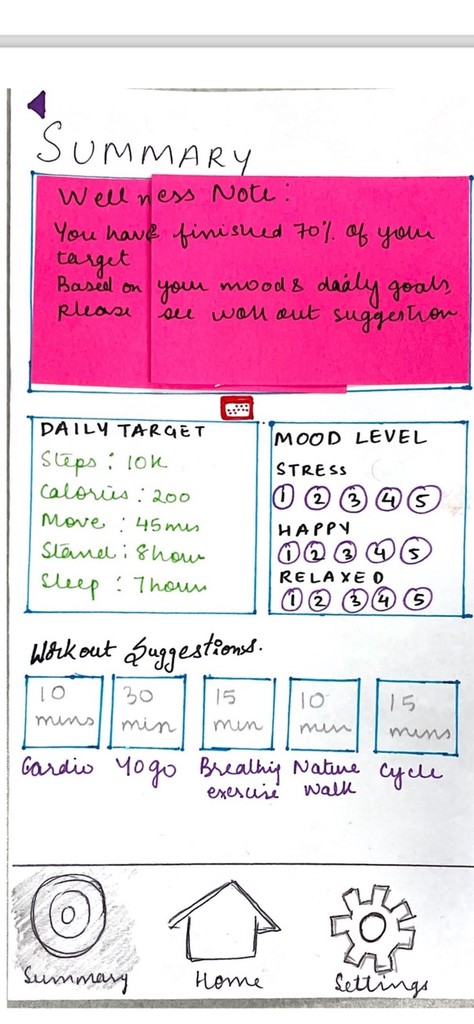 SUMMARY
Wellness Note:
You have finished 70% of your
target
Based on your mood & daily goals,
please see work out suggestion
DAILY TARGET
Steps : 10K
Calories : 200
Move : 45mns
Stand : 8 hour
Sleep : 7 hours
MOOD LEVEL
STRESS
1 2 3 4 5
HAPPY
1 2 3 4 5
RELAXED
1 2 3 4 5
Workout Suggestions.
10 mins
Cardio
30 min
Yogo
15 min
Breathig exercise
10 min
Nature walk
15 mins
Cycle
Summary
Home
Settings